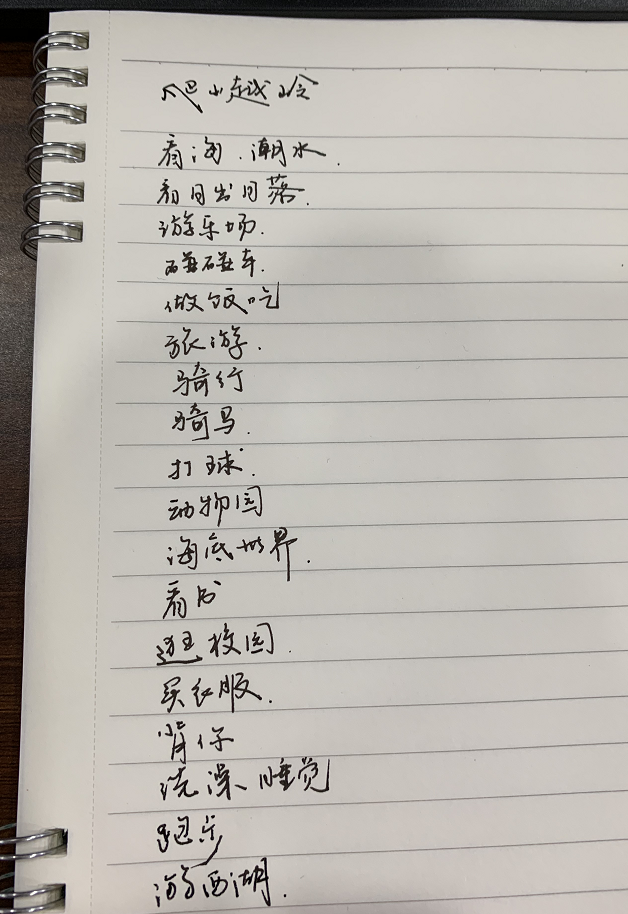 爬山越岭
看海、潮水.
看日出日落.
游乐场.
碰碰车.
做饭吃
旅游.
骑行
骑马.
打球.
动物园
海底世界.
看书
逛校园.
买衣服.
背你
洗澡、睡觉
跑步
游西湖.